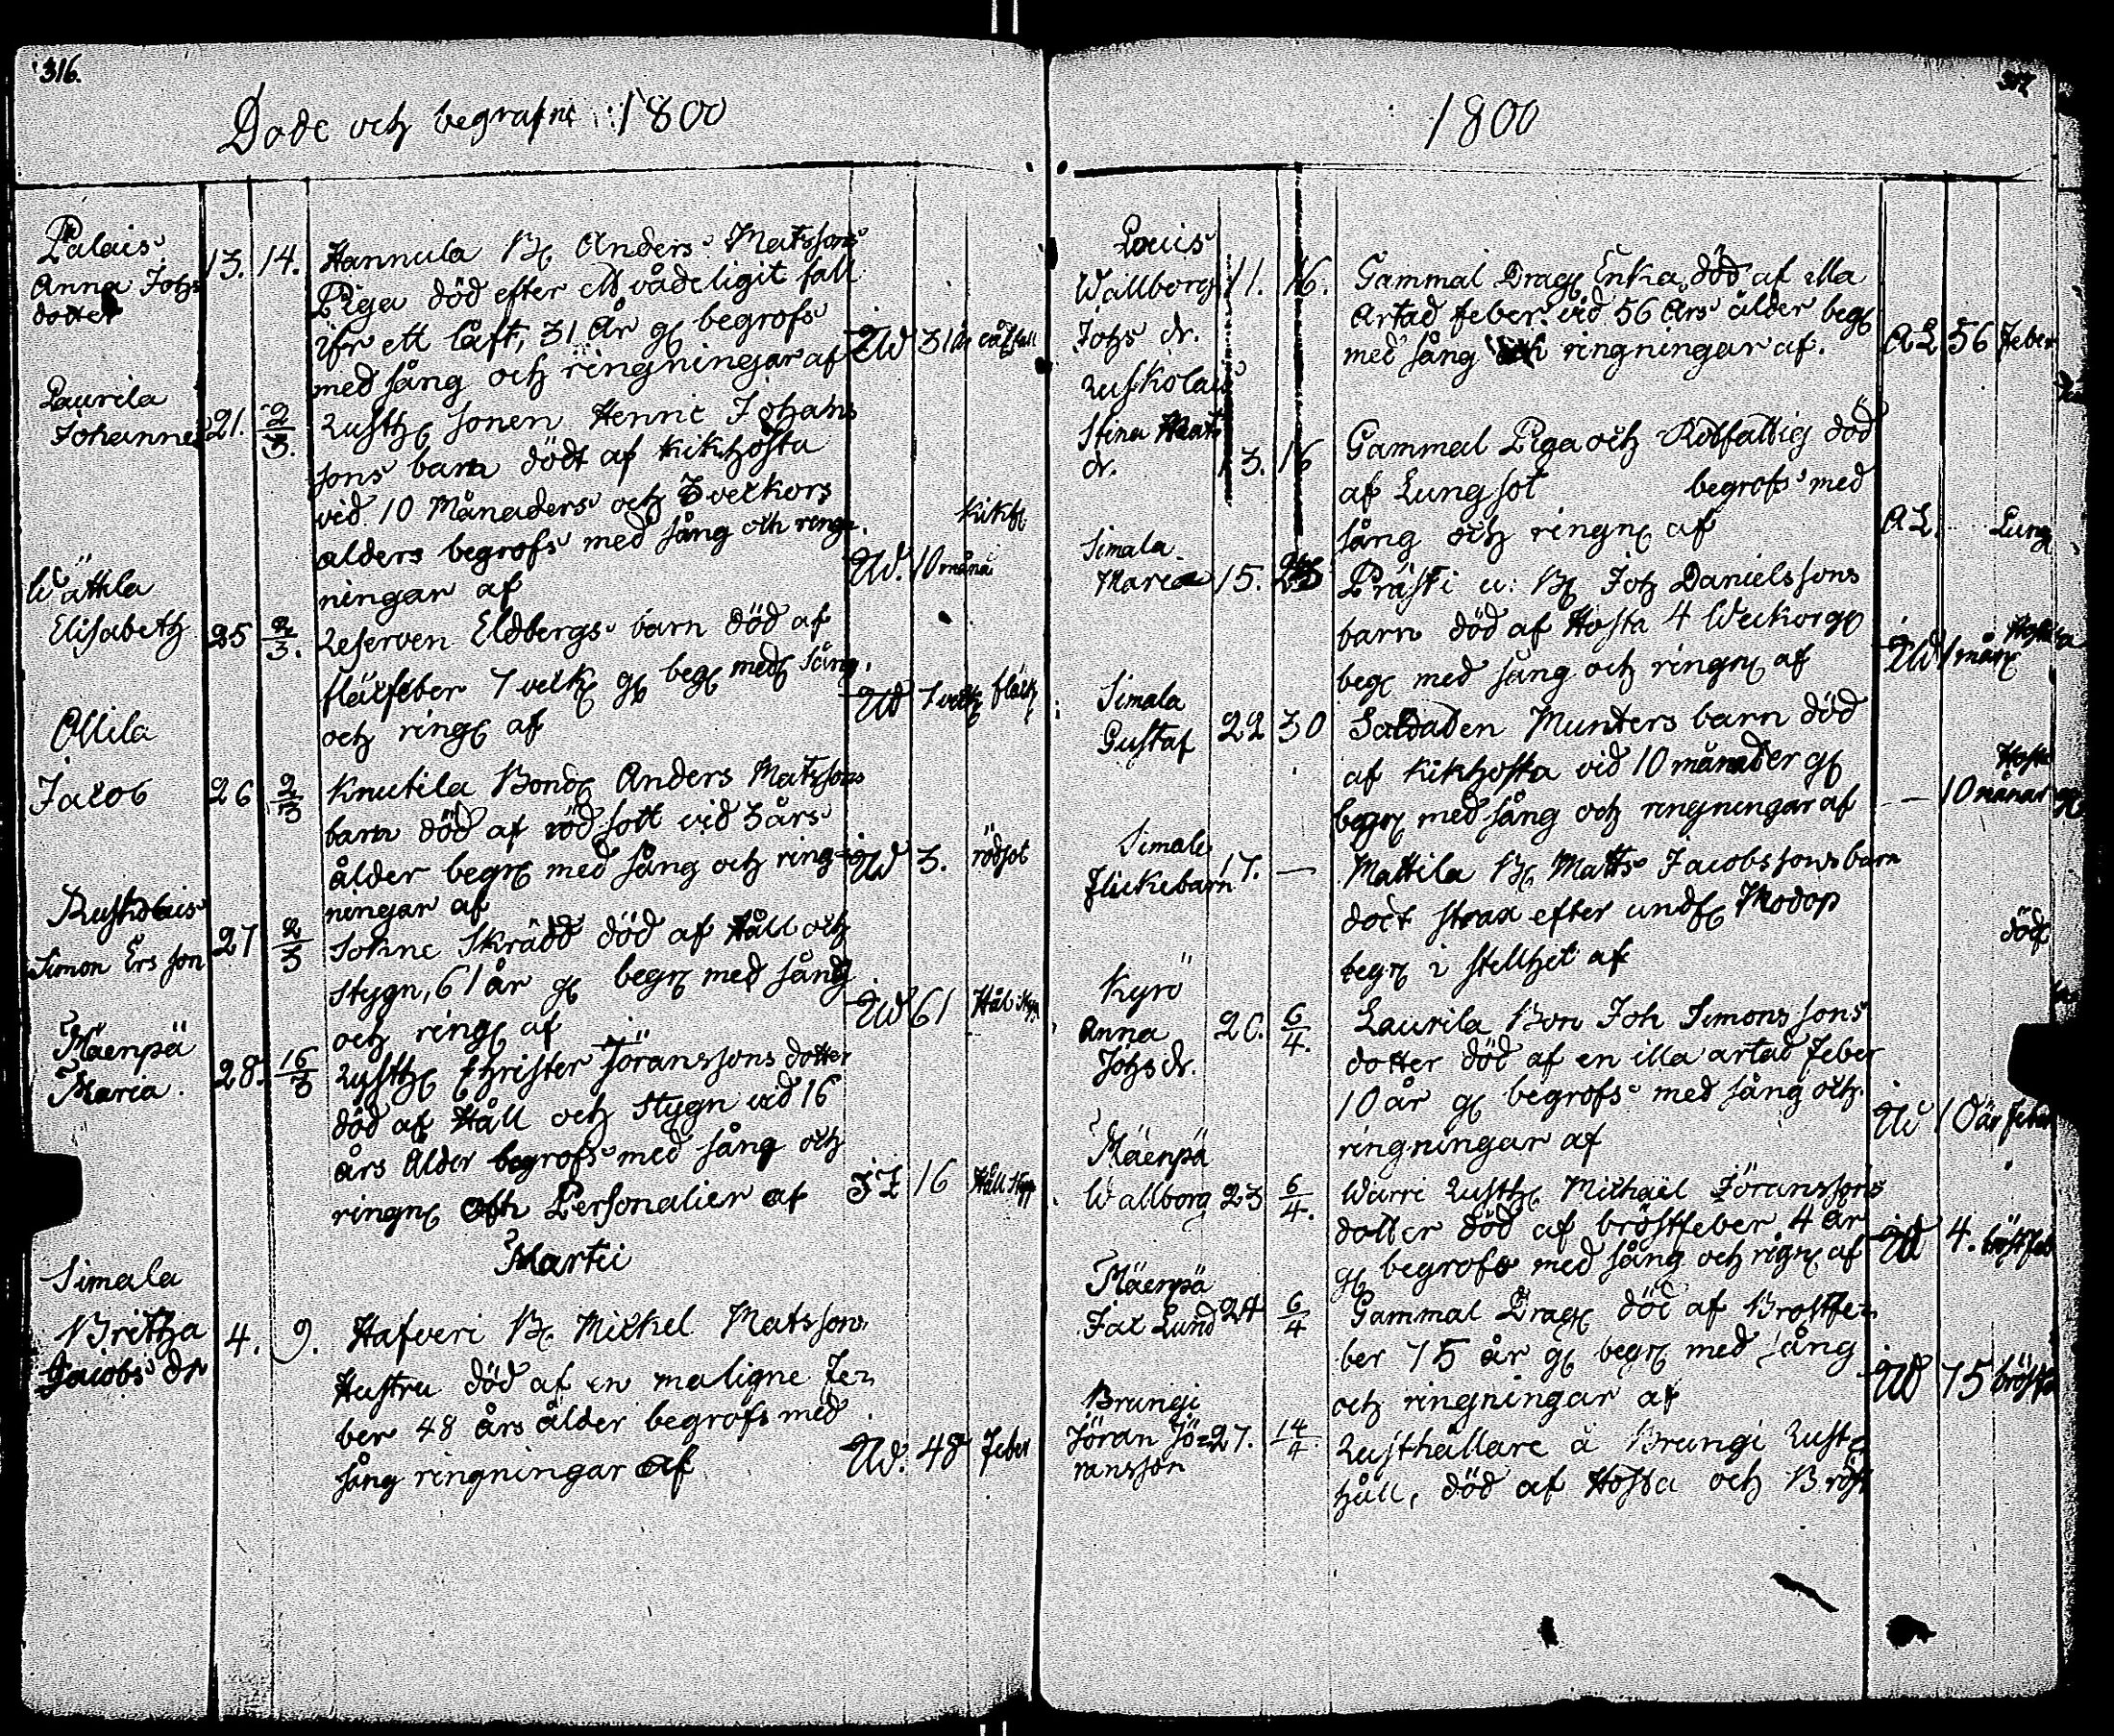 316.
Döde och begrafne 1800
Palais
Anna Johs
dotter
13. 14.
Hannula B. Anders Matssons
Piga död efter ett vådeligit fall
ifr ett låft, 31 År g. begrofs
med sång och ringningar af
UW 31
Laurila
Johannes
21. 2/3.
Rusth. sonen Henric Johans
sons barn dödt af kikhosta
vid 10 Månaders och 3 veckors
alders begrofs med sång och ring
ningar af
UW. 10 måna kikh
Wättla
Elisabeth
25 2/3.
Reserven Eldbergs barn död af
fläckfeber 7 veck. g. beg. med sång
och ring. af
UW 7 veck fläck
Ollila
Jacob
26 2/3
Knutila Bond. Anders Matssons
barn död af rödsott vid 3 års
ålder begr. med sång och ring=
ningar af
UW 3. rödsot
Ruskolais
Simon Ersson
27 2/3
Sokne Skrädd död af Håll och
stygn, 61 år g. begr. med sång
och ring. af
UW 61 Håll styg
Mäenpä
Maria.
28. 16/3
Rusth. Christer Jöranssons dotter
död af Håll och stygn vid 16
års Ålder begrofs med sång och
ringn. och Personalier af
16 Håll styg
Martii
Simala
Britha
Jacobs dr
4. 9.
Hafveri B. Mickel Matssons
Hustru död af en maligne Fe=
ber 48 års ålder begrofs med
sång ringningar af
UW. 48 Feber
317
1800
Louis
Wallborg
Johs dr.
11. 16.
Gammal Drag. Enka, död af illa
Artad feber. vid 56 Års ålder beg.
med sång och ringningar af.
AL 56 Feber
Ruskolais
Stina Mats
dr.
13. 16
Gammal Piga och Rotfattig död
af Lungsot begrofs med
sång och ringn. af
AL. Lung
Simala
Maria
15. 23
Prästi u: B. Joh Danielssons
barn död af Hosta 4 Weckor g.
beg. med sång och ringn. af
UW 1 mån Hosta
Simala
Gustaf
22 30
Soldaten Munters barn död
af kikhosta vid 10 månader g.
begr. med sång och ringningar af
— 10 månad Hosta
Simala
flickebarn
17. —
Mattila B. Matts Jacobssons barn
dödt strax efter undf. Nödop
begr. i stillhet af
dödf
Kyrö
Anna
Johs dr.
20. 6/4.
Laurila Bon Joh Simonssons
dotter död af en illa artad feber
10 år g. begrofs med sång och
ringningar af
UW 10 år feber
Mäenpä
Wallborg
23 6/4.
Warri Rusth. Michaël Jöranssons
dotter död af bröstfeber 4 år
g. begrofs med sång och rign. af
UW 4. bröstfeb
Mäenpä
Jac Lund
24 6/4
Gammal Drag. död af Bröstfe=
ber 75 år g. begr. med sång
och ringningar af
UW 75 bröstf
Brungi
Jöran Jö=
ransson
27. 14/4.
Rusthållare å Brungi Rust=
håll, död af Hosta och Bröst